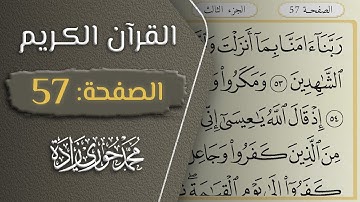 القرآن الكريم
الصفحة: 57
محمد حوري زادة
الصفحة 57
الجزء الثالث
رَبَّنَآ ءَامَنَّا بِمَآ أَنزَلْتَ وَٱتَّ
ٱلشَّٰهِدِينَ ٥٣ وَمَكَرُوا۟ وَ
٥٤ إِذْ قَالَ ٱللَّهُ يَٰعِيسَىٰٓ إِنِّى
مِنَ ٱلَّذِينَ كَفَرُوا۟ وَجَاعِلُ
كَفَرُوٓا۟ إِلَىٰ يَوْمِ ٱلْقِيَٰمَةِ ۖ